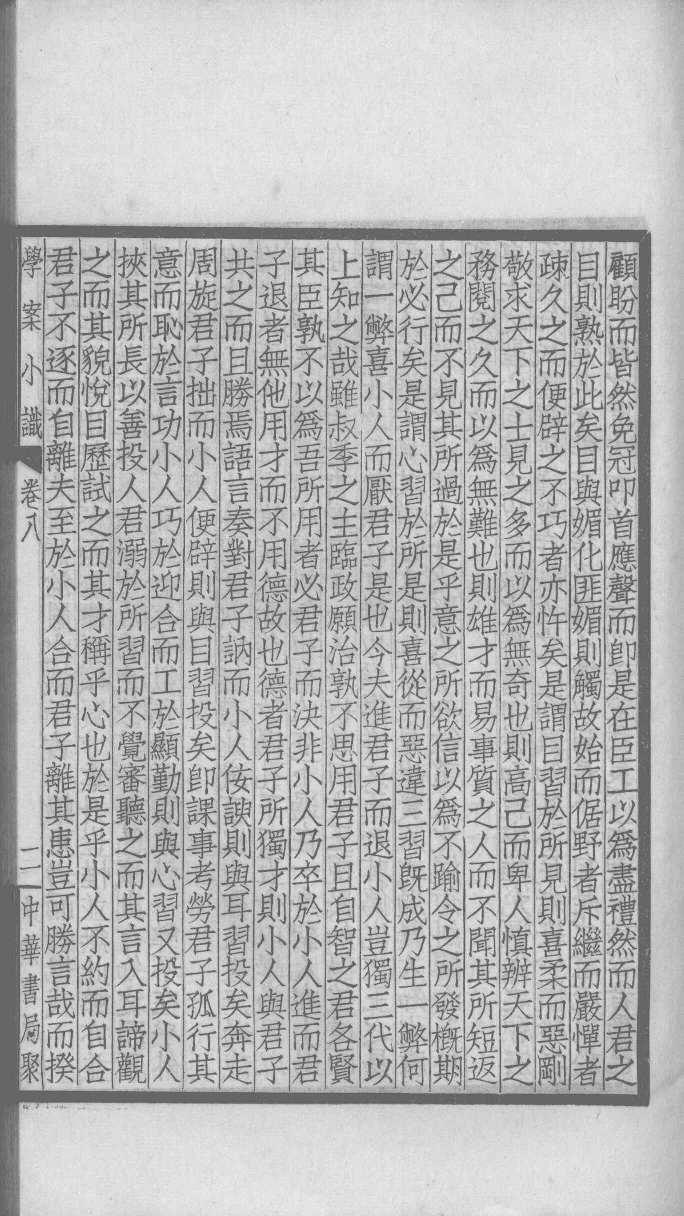 顧盼而皆然免冠叩首應聲而卽是在臣工以爲盡禮然而人君之
目則熟於此矣目與媚化匪媚則觸故始而倨野者斥繼而嚴憚者
疎久之而便辟之不巧者亦忤矣是謂目習於所見則喜柔而惡剛
敬求天下之士見之多而以爲無奇也則高己而卑人慎辨天下之
務閱之久而以爲無難也則雄才而易事質之人而不聞其所短返
之己而不見其所過於是乎意之所欲信以爲不踰令之所發槪期
於必行矣是謂心習於所是則喜從而惡違三習旣成乃生一弊何
謂一弊喜小人而厭君子是也今夫進君子而退小人豈獨三代以
上知之哉雖叔季之主臨政願治孰不思用君子且自智之君各賢
其臣孰不以爲吾所用者必君子而決非小人乃卒於小人進而君
子退者無他用才而不用德故也德者君子所獨才則小人與君子
共之而且勝焉語言奏對君子訥而小人佞諛則與耳習投矣奔走
周旋君子拙而小人便辟則與目習投矣卽課事考勞君子孤行其
意而恥於言功小人巧於迎合而工於顯勤則與心習又投矣小人
挾其所長以善投人君溺於所習而不覺審聽之而其言入耳諦觀
之而其貌悅目歷試之而其才稱乎心也於是乎小人不約而自合
君子不逐而自離夫至於小人合而君子離其患豈可勝言哉而揆
學案小識 卷八 二一 中華書局聚